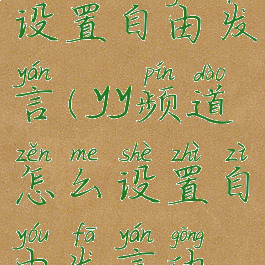 设置自由发
yán pín dào
言(YY频道
zěn me shè zhì zì
怎么设置自
yóu fā yán gōng